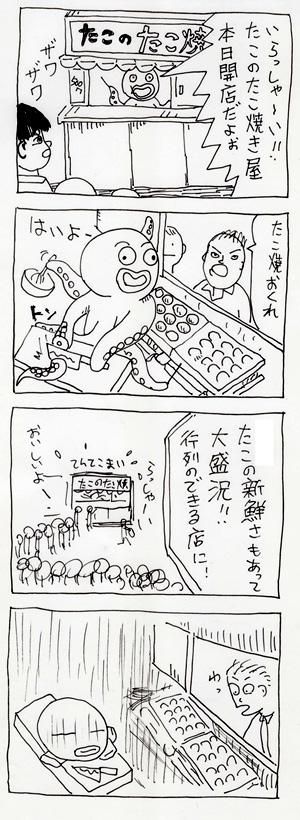 たこの たこ焼
いらっしゃ〜い!!
たこのたこ焼き屋
本日開店だよぉ
ザワ
ザワ
たこ焼おくれ
はいよー
トン
たこの新鮮さもあって
大盛況!!
行列のできる店に!
らっしゃーい
てんてこまい
たこのたこ焼
おいしいよー
わっ